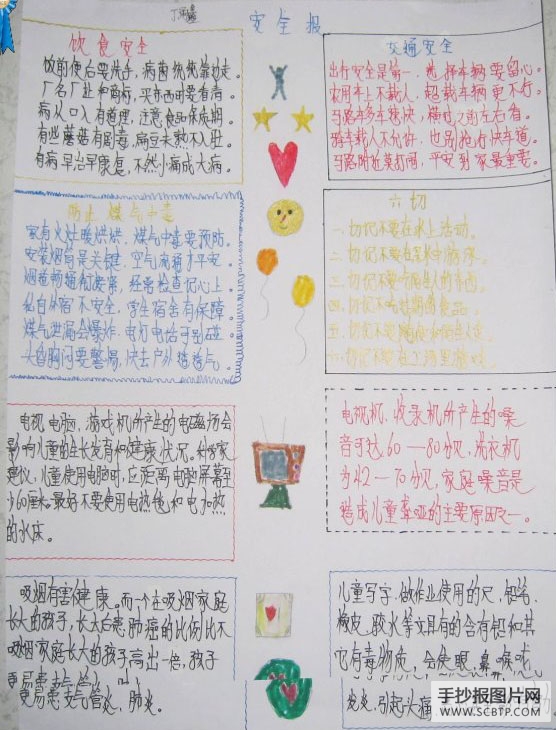 安全报
饮食安全
饭前便后要洗手，病菌
厂名厂址和商标，买东西时要看清。
病从口入有道理，注意食品保质期。
有些蘑菇有剧毒，扁豆未熟不入肚。
有病早治早康复，不然小痛成大病。
交通安全
出行安全是第一，
农用车上不载人，超载车辆更不行。
马路车多车速快，横过
骑车载人不允许，也别抢行快车道。
马路附近莫打闹，平安到家最重要。
防止煤气中毒
家有火炉暖烘烘，煤气中毒要预防。
安装烟筒是关键，空气流通才平安。
烟道畅通
私自外宿不安全，学生宿舍有保障。
煤气泄漏会爆炸，电灯电话可别碰
头昏胸闷要警惕，快去户外透透气。
六切
一、切记不要在冰上活动。
二、切记不要在深水中游泳。
三、切记不要吃陌生人的东西。
四、切记不吃过期的食品。
五、切记不要
六、切记不要在
电视、电脑，游戏机所产生的电磁场会
影响儿童的生长发育和健康状况。科学家
建议，儿童使用电脑时，应距离电脑屏幕至
少60厘米。最好不要使用电热毯和电加热
的水床。
电视机、收录机所产生的噪
音可达60—80分贝，洗衣机
为42—70分贝，家庭噪音是
造成儿童聋哑的主要原因之一。
吸烟有害健康。而一个在吸烟家庭
长大的孩子，长大后患肺癌的比例比不
吸烟家庭长大的孩子高出一倍，孩子
更易患支气管炎、肺炎。
儿童写字、做作业使用的尺、铅笔、
橡皮、胶水等文具有的含有铅和其
它有毒物质，会使眼、鼻、喉
发炎，引起头痛
手抄报图片网
WWW.SCBTP.COM